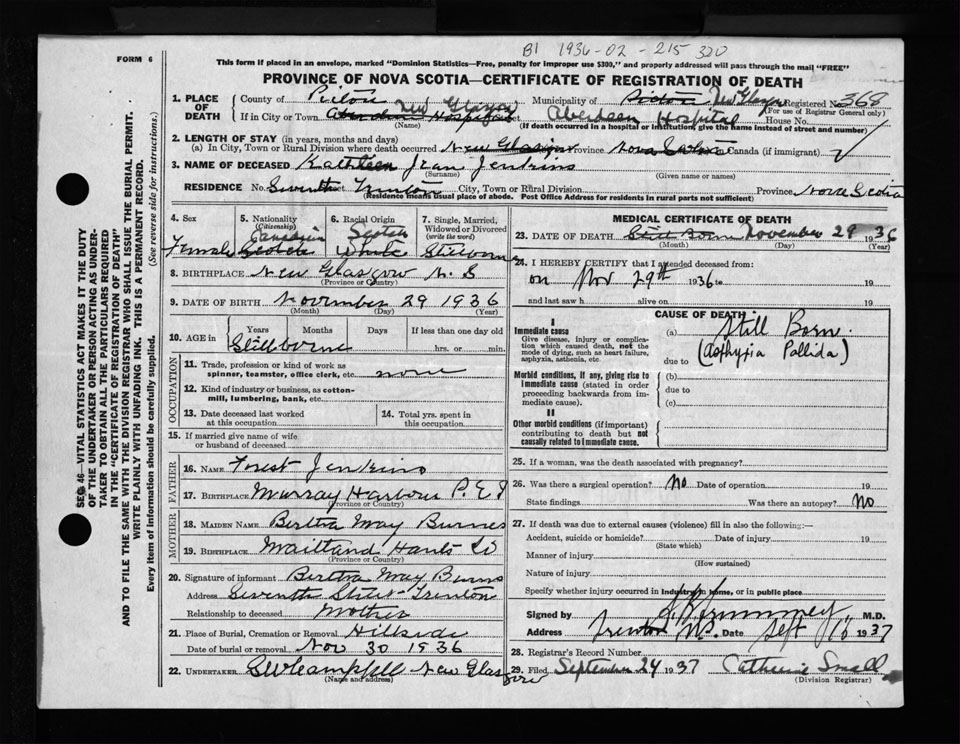 B1 1936-02-215320
FORM 6
This form if placed in an envelope, marked "Dominion Statistics—Free, penalty for improper use $300," and properly addressed will pass through the mail "FREE"
PROVINCE OF NOVA SCOTIA—CERTIFICATE OF REGISTRATION OF DEATH
1. PLACE OF DEATH
County of Pictou Municipality of Pictou New Glasgow Registered No. 368
(For use of Registrar General only)
If in City or Town Aberdeen Hospital New Glasgow Aberdeen Hospital House No.
(Name) (If death occurred in a hospital or institution, give the name instead of street and number)
2. LENGTH OF STAY (in years, months and days)
(a) In City, Town or Rural Division where death occurred New Glasgow Province Nova Scotia in Canada (if immigrant)
3. NAME OF DECEASED Kathleen Jean Jenkins
(Surname) (Given name or names)
RESIDENCE No. Seventh Street Trenton City, Town or Rural Division Province Nova Scotia
(Residence means usual place of abode. Post Office Address for residents in rural parts not sufficient)
4. Sex Female
5. Nationality (Citizenship) Canadian Scotch
6. Racial Origin Scotch White
7. Single, Married, Widowed or Divorced (write the word) Stillborn
8. BIRTHPLACE New Glasgow N.S
(Province or Country)
9. DATE OF BIRTH November 29 1936
(Month) (Day) (Year)
10. AGE in Years Months Days If less than one day old
Stillborne hrs. or min.
OCCUPATION
11. Trade, profession or kind of work as spinner, teamster, office clerk, etc. none
12. Kind of industry or business, as cotton-mill, lumbering, bank, etc.
13. Date deceased last worked at this occupation
14. Total yrs. spent in this occupation
15. If married give name of wife or husband of deceased
FATHER
16. NAME Forest Jenkins
17. BIRTHPLACE Murray Harbour P.E.I
(Province or Country)
MOTHER
18. MAIDEN NAME Bertha May Burnes
19. BIRTHPLACE Maitland Hants
(Province or Country)
20. Signature of informant Bertha May Burns
Address Seventh Street Trenton
Relationship to deceased Mother
21. Place of Burial, Cremation or Removal Hillside
Date of burial or removal Nov 30 1936
22. UNDERTAKER Campbell New Glasgow
(Name and address)
MEDICAL CERTIFICATE OF DEATH
23. DATE OF DEATH Still Born November 29 1936
(Month) (Day) (Year)
24. I HEREBY CERTIFY that I attended deceased from:
on Nov 29th 1936 to 19
and last saw h alive on 19
CAUSE OF DEATH
I
Immediate cause
Give disease, injury or complication which caused death, not the mode of dying, such as heart failure, asphyxia, asthenia, etc.
(a) Still Born.
(Asphyxia Pallida)
due to
Morbid conditions, if any, giving rise to immediate cause (stated in order proceeding backwards from immediate cause).
(b)
due to
(c)
II
Other morbid conditions (if important) contributing to death but not causally related to immediate cause.
25. If a woman, was the death associated with pregnancy?
26. Was there a surgical operation? No Date of operation 19
State findings Was there an autopsy? No
27. If death was due to external causes (violence) fill in also the following:—
Accident, suicide or homicide? Date of injury 19
(State which)
Manner of injury
(How sustained)
Nature of injury
Specify whether injury occurred in Industry, in home, or in public place
Signed by M.D.
Address Trenton NS. Date Sept 10 1937
28. Registrar's Record Number
29. Filed September 24 1937 Catherine Small
(Division Registrar)
SEC. 46—VITAL STATISTICS ACT MAKES IT THE DUTY
OF THE UNDERTAKER OR PERSON ACTING AS UNDER-
TAKER TO OBTAIN ALL THE PARTICULARS REQUIRED
IN THE "CERTIFICATE OF REGISTRATION OF DEATH"
AND TO FILE THE SAME WITH THE DIVISION REGISTRAR WHO SHALL ISSUE THE BURIAL PERMIT.
WRITE PLAINLY WITH UNFADING INK. THIS IS A PERMANENT RECORD.
Every item of information should be carefully supplied. (See reverse side for instructions.)